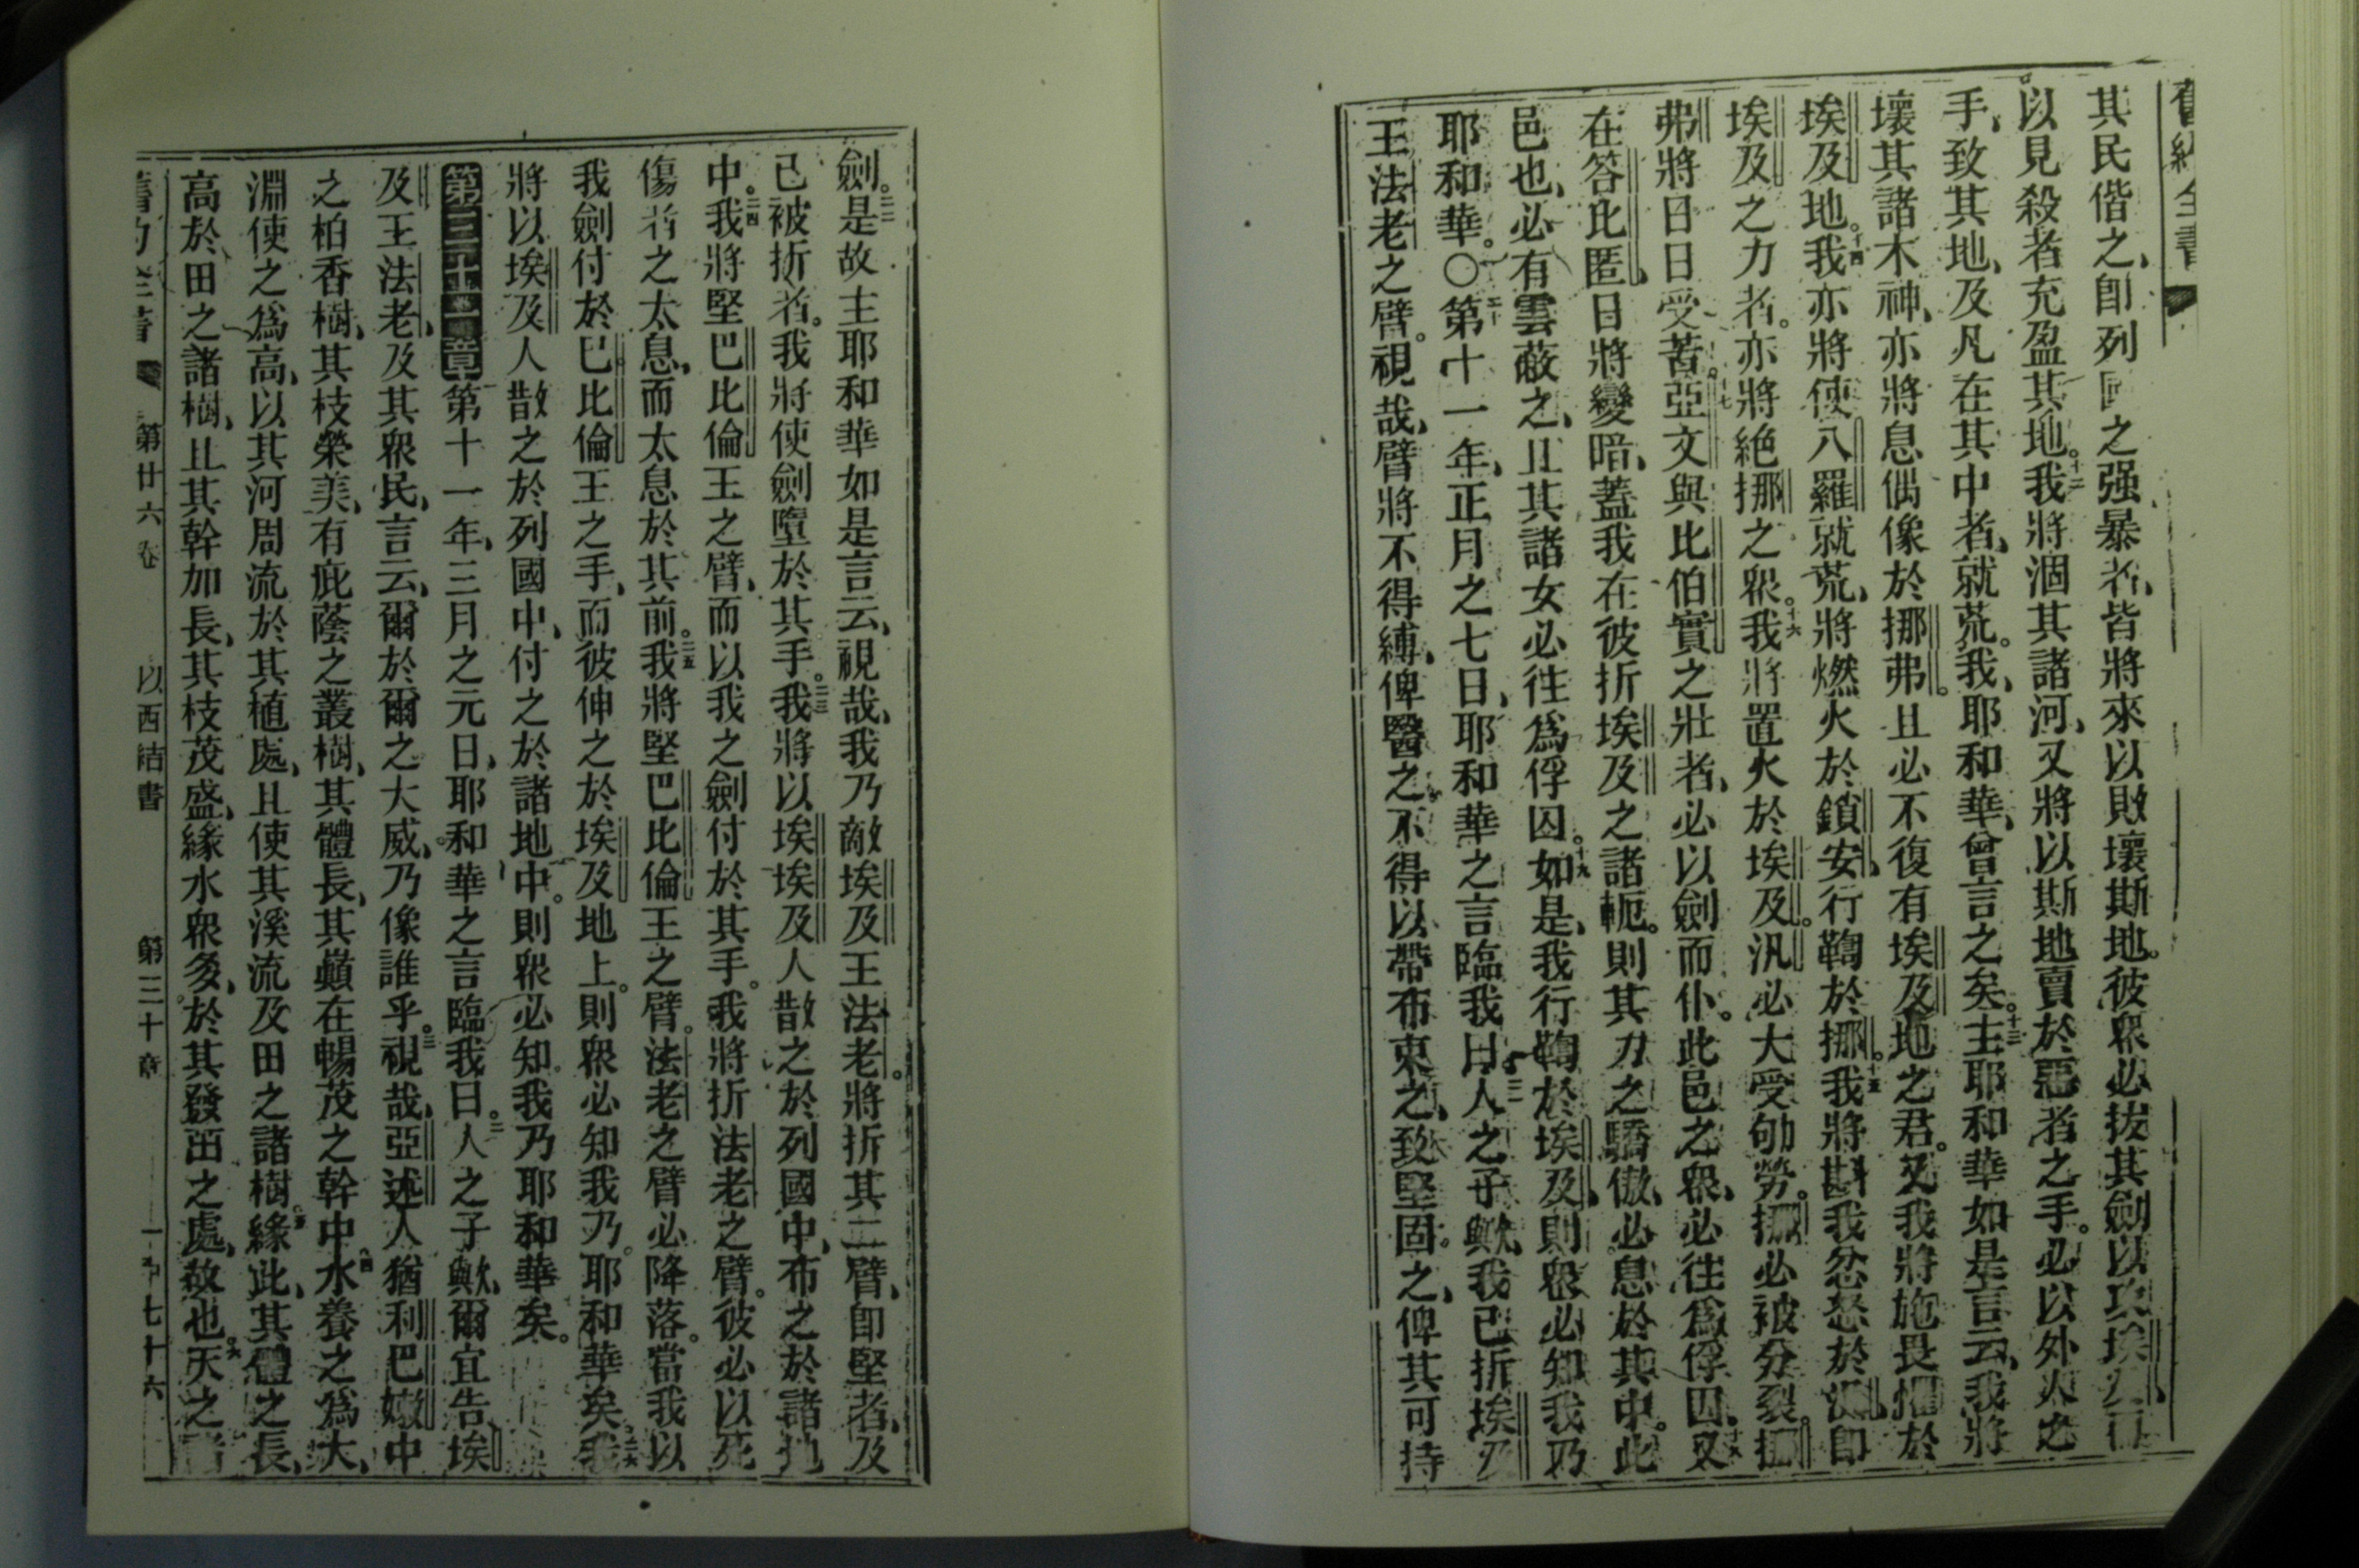 其民偕之、即列國之强暴者、皆將來以敗壞斯地。彼衆必拔其劍以攻埃及、而
以見殺者充盈其地。十二我將涸其諸河、又將以斯地賣於惡者之手。必以外人之
手、致其地、及凡在其中者、就荒。我、耶和華、曾言之矣。十三主耶和華如是言云、我將
壞其諸木神、亦將息偶像於挪弗。且必不復有埃及地之君。又我將施畏懼於
埃及地。十四我亦將使八羅就荒、將燃火於鎖安、行鞫於挪。十五我將斟我忿怒於汛、即
埃及之力者。亦將絕挪之衆。十六我將置火於埃及。汛必大受劬勞。挪必被分裂。挪
弗將日日受苦。十七亞文與比伯實之壯者、必以劍而仆。此邑之衆、必往爲俘囚。十八又
在答比匿、日將變暗、蓋我在彼折埃及之諸軛。則其力之驕傲、必息於其中。此
邑也、必有雲蔽之、且其諸女必往爲俘囚。十九如是、我行鞫於埃及、則衆必知我乃
耶和華。○二十第十一年、正月之七日、耶和華之言臨我曰。二一人之子歟、我已折埃及
王法老之臂。視哉、臂將不得縛、俾醫之、不得以帶布束之、致堅固之、俾其可持
舊約全書
劍。二二是故主耶和華如是言云、視哉、我乃敵埃及王法老。將折其二臂、即堅者、及
已被折者。我將使劍墮於其手。二三我將以埃埃及人散之於列國中、布之於諸地
中。二四我將堅巴比倫王之臂、而以我之劍付於其手。我將折法老之臂。彼必以死
傷者之太息、而太息於其前。二五我將堅巴比倫王之臂。法老之臂必降落。當我以
我劍付於巴比倫王之手、而彼伸之於埃及地上。則衆必知我乃耶和華矣。二六我
將以埃及人散之於列國中、付之於諸地中。則衆必知我乃耶和華矣。
第三十一章 第十一年、三月之元日、耶和華之言臨我曰。二人之子歟、爾宜告埃
及王法老、及其衆民、言云、爾於爾之大威、乃像誰乎。三視哉、亞述人猶利巴嫩中
之柏香樹、其枝榮美、有庇蔭之叢樹、其體長、其巔在暢茂之幹中。四水養之爲大、
淵使之爲高、以其河周流於其植處、且使其溪流及田之諸樹。五緣此、其體之長、
高於田之諸樹、且其幹加長、其枝茂盛、緣水衆多、於其發出之處、故也。六天之諸
舊約全書 第廿六卷 以西結書 第三十章 一千七十六